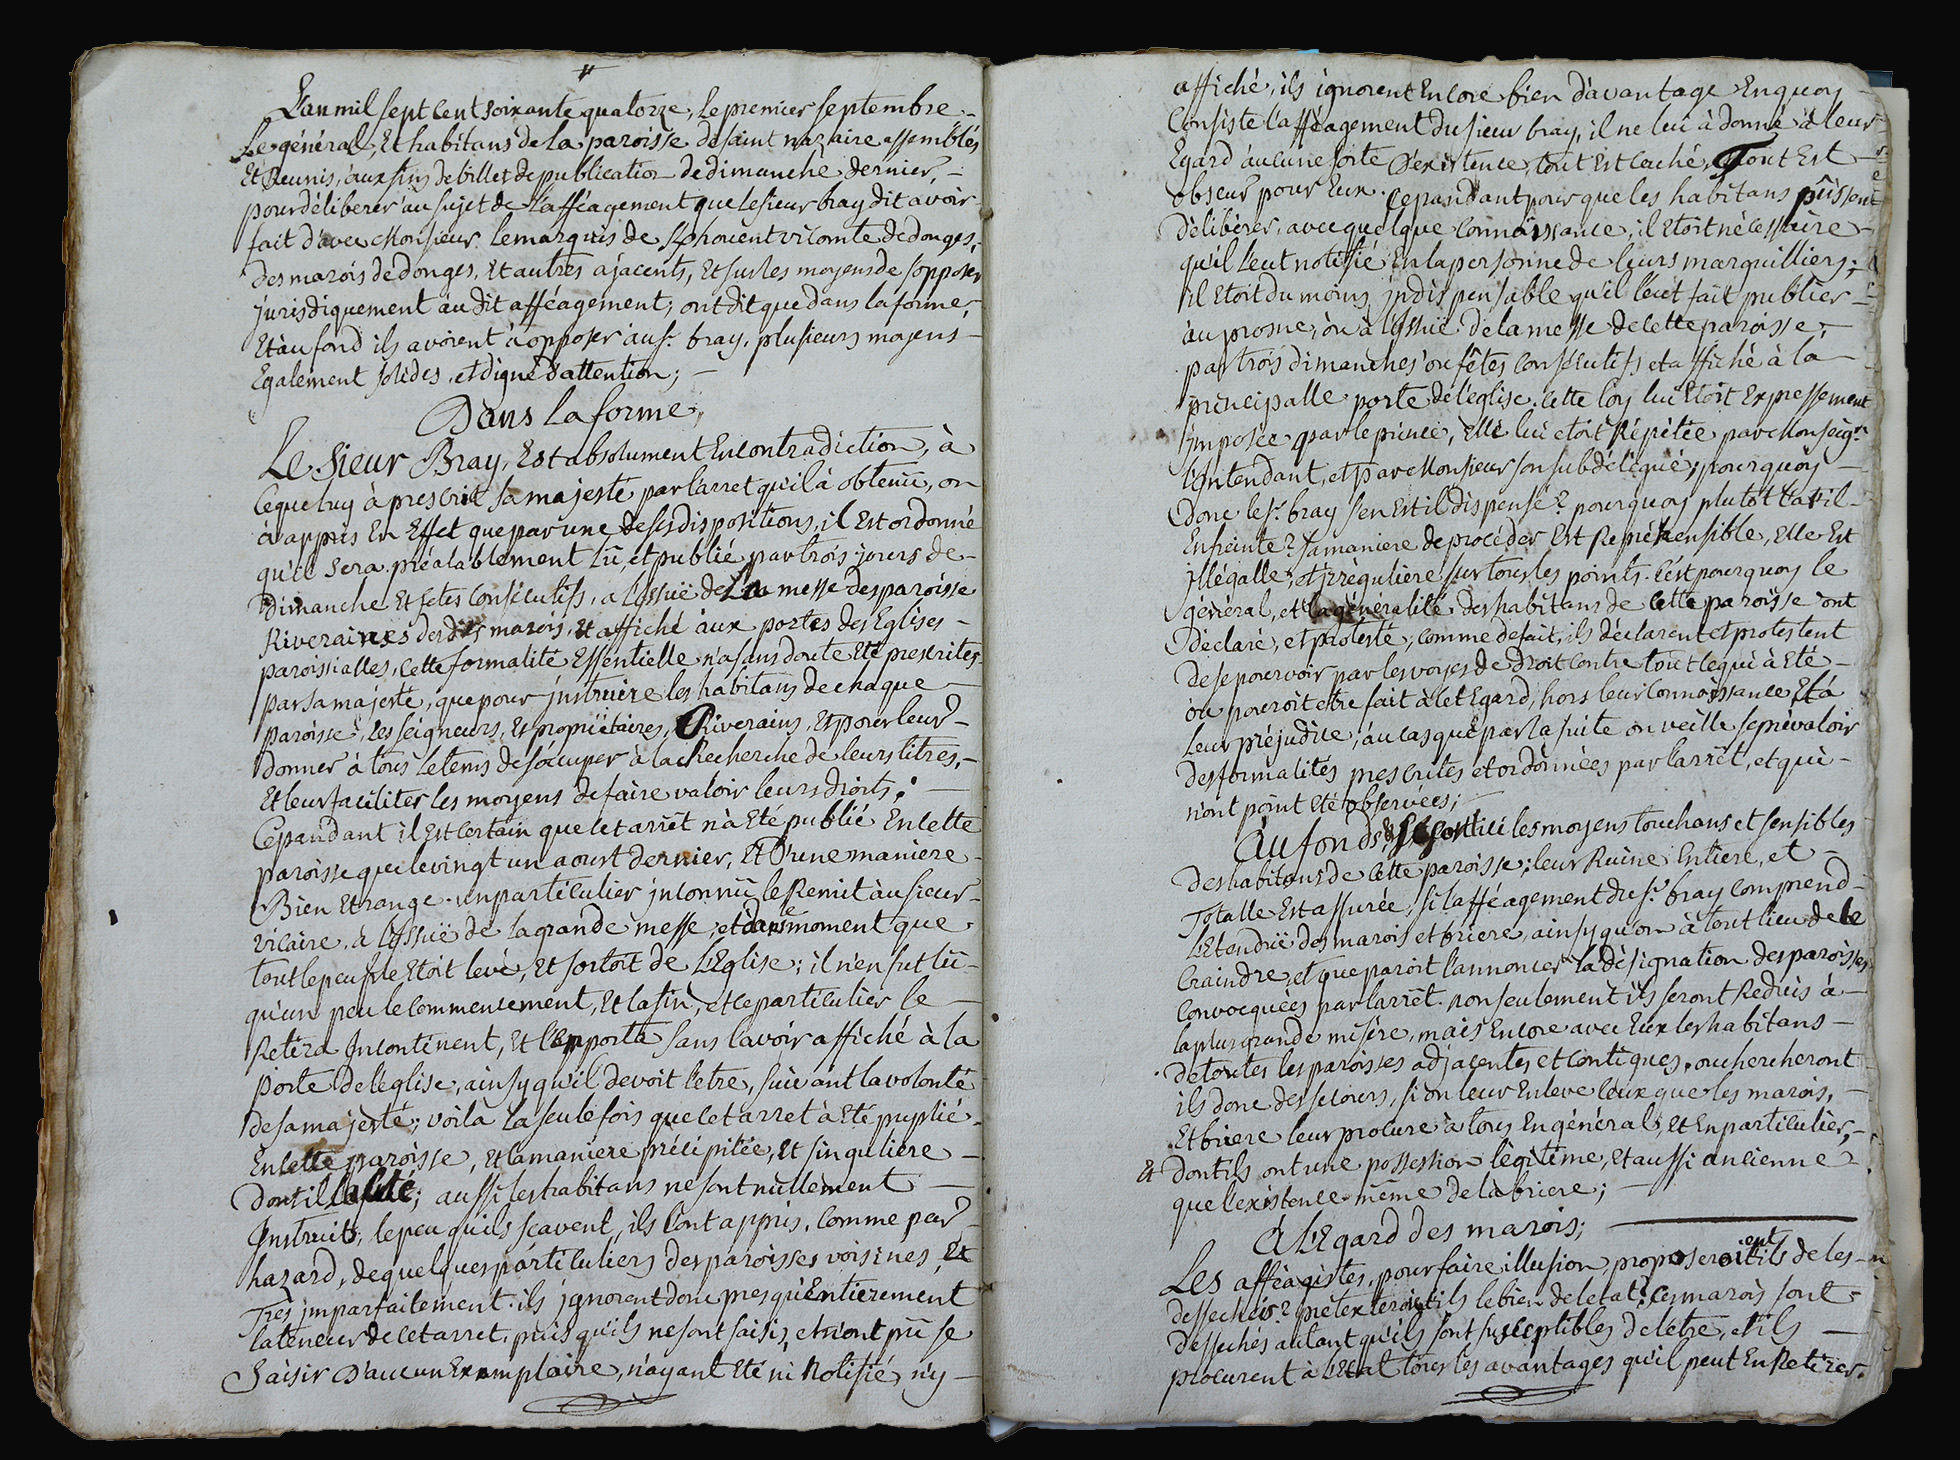 L'an mil sept cent soixante quatorze, le premier septembre
Le général, Et habitans de la paroisse de saint nazaire assemblés
Et Reunis, aux fins de billet de publication de dimanche dernier,
pour délibérer au sujet de l'afféagement que le sieur bray dit avoir
fait d'avec Monsieur le marquis de vicomte de donges,
des marois de donges, et autres ajacents, et sur les moyens de s'opposer
jurisdiquement audit afféagement; ont dit que dans la forme,
Et au fond ils avoient à opposer au sr. bray, plusieurs moyens
Egalement solides, et digne d'attention;
Dans la forme,
Le Sieur Bray, Est absolument En contradiction, à
ce que luy à prescrit sa majesté par l'arret qu'il à obtenü, on
à appris En Effet que par une de ses dispositions, il Est ordonné
qu'il sera préalablement lü, et publié par trois jours de
dimanche et fetes consécutifs, a l'issuë de La messe des paroisse
Riveraines desdits marois, et affiché aux portes des Eglises
paroissialles, cette formalité Essentielle n'a sans doute Eté prescrites
par sa majesté, que pour instruire les habitans de chaque
paroisse, les seigneurs, et propriëtaires, Riverains, et pour leur
donner à tous le tems de s'occuper à la Recherche de leurs titres,
Et leur faciliter les moyens de faire valoir leurs droits.
Cepandant il Est certain que cet arrêt n'à Eté publié En cette
paroisse que le vingt un aoust dernier, Et D'une maniere
Bien Etrange. un particulier inconnü le Remit au sieur
vicaire, à l'issuë de la grande messe, et dans le moment que
tout le peuple Etoit levé, Et sortoit de L'Eglise; il n'en fut lü
qu'un peu le commencement, Et la fin, et ce particulier le
Retira Incontinent, Et l'Emporta sans l'avoir affiché à la
porte de l'eglise, ainsy qu'il devoit l'etre, suivant la volonté
de sa majesté; voilà la seule fois que cet arret à Eté puplié
En cette paroisse, Et la maniere précipitée, Et singuliere
dont il ; aussi les habitans ne sont nullement
Instruits, le peu qu'ils scavent, ils l'ont appris, comme par
hazard, de quelques particuliers des paroisses voisines, Et
Tres imparfaitement. ils ignorent donc presqu'Entierement
la teneur de cet arret, puis qu'ils ne sont saisis, et n'ont pü se
Saisir D'aucun Exemplaire, n'ayant Eté ni Notifié, n'y
affiché, ils ignorent Encore bien d'avantage En quoy
Consiste l'afféagement du sieur bray, il ne lui à donné à leur
Egard aucune sorte D'existence, tout Est caché, Tout Est
obscur pour Eux. Cepandant pour que les habitans puissent
Délibérer, avec quelque Connoissance, il Etoit nécessaire
qu'il l'eut notifié En la personne de leurs marguilliers;
il Etoit du moins indispensable qu'il l'eut fait publier
au prosne, ou à l'issuë de la messe de cette paroisse,
par trois dimanches ou fêtes consécutifs et affiché à la
principalle porte de l'église. cette loy lui Etoit Expressement
imposée par le prince, Elle lui etoit Répétée par Monseigr.
l'Intendant, et par Monsieur son subdélégué; pourquoy
donc le sr. bray s'en Est il dispensé? pourquoy plutôt l'a t'il
Enfreinte? sa maniere de procéder Est Repréhensible, Elle Est
illégalle, et irréguliere sur tous les points. c'est pourquoy le
général, et la généralité des habitans de Cette paroisse ont
déclaré, et protesté, comme de fait, ils déclarent et protestent
de se pourvoir par les voyes de droit contre tout ce qui à Eté
ou pouroit etre fait à cet Egard, hors leur Connoissance, Et à
leur préjudice, au cas que par la suite on veille se prévaloir
des formalités prescrites et ordonnées par l'arrêt, et qui
n'ont point Eté observées;
Au fonds, les moyens touchans et sensibles
des habitans de Cette paroisse; leur Ruine Entiere, et
Totalle Est assurée, si l'afféagement du sr. bray comprend
L'Etenduë des marois et briere, ainsy qu'on à tout lieu de le
Craindre, et que paroit l'annoncer la désignation des paroisses
Convocquées par l'arrêt. non seulement ils seront Reduis à
la plus grande misère, mais Encore avec Eux les habitans
de toutes les paroisses adjacentes et contiques. ou chercheront
ils donc des secours, si on leur Enleve ceux que les marois,
Et briere leur procure à tous En général, Et En particulier,
& dont ils ont une possession légitime, Et aussi ancienne
que l'existence même de la briere;
A L'Egard des marois;
Les afféagistes, pour faire illusion, proposeroient ils de les
dessechés? prétexteroient ils le bien de letat? ces marois sont
Dessechés autant qu'ils sont susceptibles de lètre, et ils
procurent à l'Etat tous les avantages qu'il peut En Retirer.